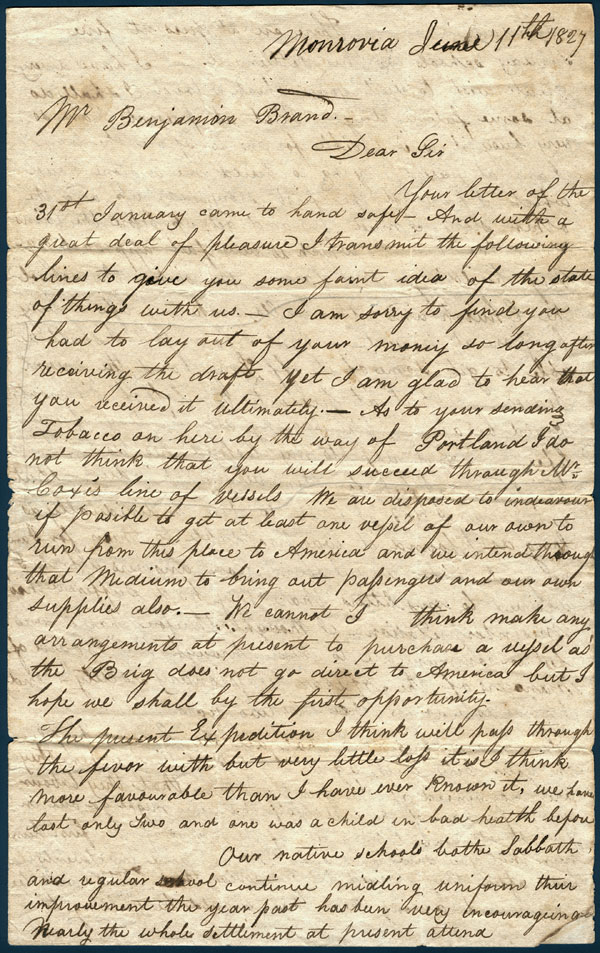 Monrovia June 11th 1827
Mr Benjamin Brand.—
Dear Sir
Your letter of the
31st January came to hand safe— And with a
great deal of pleasure I transmit the following
lines to give you some faint idea of the state
of things with us.— I am sorry to find you
had to lay out of your money so long after
receiving the draft yet I am glad to hear that
you received it ultimately.— As to your sending
Tobacco on here by the way of Portland I do
not think that you will succeed through Mr
Cox's line of vessels We are disposed to indeavour
if posible to get at least one vessel of our own to
run from this place to America and we intend through
that Medium to bring out passengers and our own
supplies also.— We cannot I think make any
arrangements at present to purchase a vessel as
the Brig does not go direct to America but I
hope we shall by the first opportunity.
The present Expedition I think will pass through
the fevor with but very little loss it is I think
more favourable than I have ever known it, we have
lost only two and one was a child in bad health before
Our native schools bothe Sabbath
and regular school continue midling uniform their
improvement the year past has been very encouraging
Nearly the whole settlement at present attend